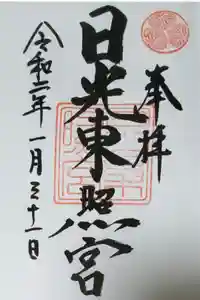 奉拝
日光東照宮
令和二年一月三十一日